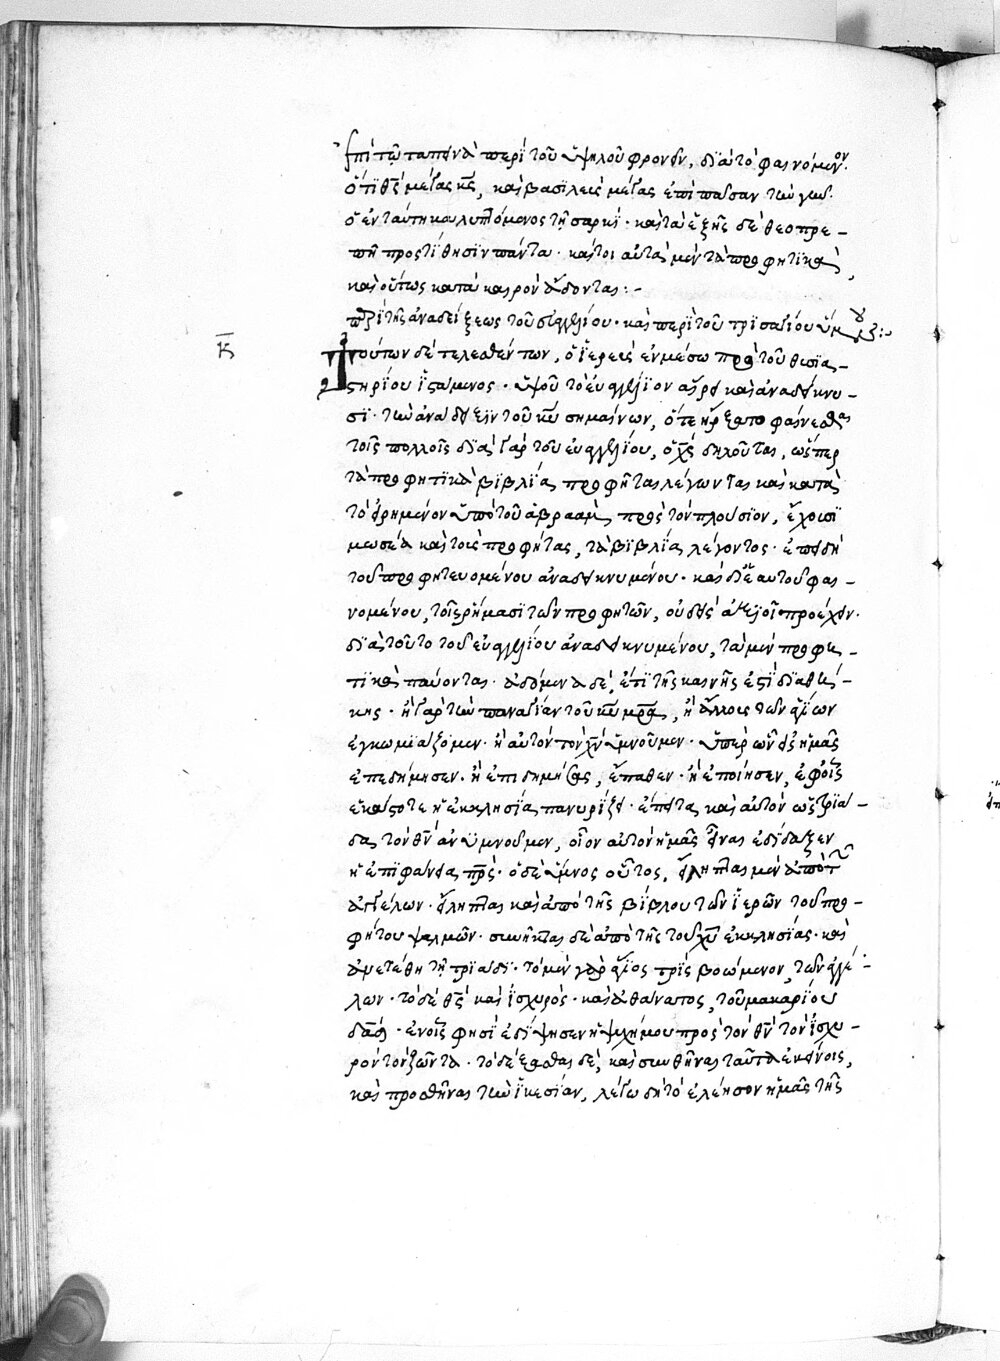 ἐπὶ τῷ ταπεινὰ περὶ τοῦ ὑψηλοῦ φρονεῖν, διὰ τὸ φαινόμενον.
ὅτι θς μέγας κς, καὶ βασιλεὺς μέγας ἐπὶ πᾶσαν τὴν γῆν.
ὁ ἐν ταύτῃ καλυπτόμενος τῇ σαρκί· καὶ τὰ ἑξῆς δὲ θεοπρε-
πῆ προστίθησιν πάντα· καίτοι αὐτὰ μὲν τὰ προφητικὰ,
καὶ οὕτως κατὰ καιρὸν ἄδονται:-
περὶ τῆς ἀναδείξεως τοῦ εὐαγγελίου· καὶ περὶ τοῦ τρισαγίου ὕμνου
κ
Τούτων δὲ τελεσθέντων, ὁ ἱερεὺς ἐν μέσω πρὸ τοῦ θυσια-
στηρίου ἱστάμενος· ὑψοῦ τὸ εὐαγγέλιον αἴρει καὶ ἀναδείκνυ-
σι· τὴν ἀνάδειξιν τοῦ κυ σημαίνων, ὅτε ἤρξατο φαίνεσθαι
τοῖς πολλοῖς διὰ γὰρ τοῦ εὐαγγελίου, ὁ χς δηλοῦται, ὥσπερ
τὰ προφητικὰ βιβλία, προφῆται λέγονται καὶ κατὰ
τὸ εἰρημένον ὑπὸ τοῦ ἀβραὰμ πρὸς τὸν πλούσιον, ἔχουσι
μωσέα καὶ τοὺς προφήτας, τὰ βιβλία λέγοντος· ἐπειδὴ
τοῦ προφητευομένου ἀναδεικνυμένου· καὶ δι' ἑαυτοῦ φαι-
νομένου, τοῖς ῥήμασι τῶν προφητῶν, οὐδεὶς ἀξιοῖ προσέχειν·
διὰ τοῦτο τοῦ εὐαγγελίου ἀναδεικνυμένου, τὰ μὲν προφη-
τικὰ παύονται· ἀδόμενα δὲ, ἐπὶ τῆς καινῆς ἐστὶ διαθή-
κης· ἢ γὰρ τὴν παναγίαν τοῦ κυ μρα, ἢ ἄλλους τῶν ἁγίων
ἐγκωμιάζομεν· ἢ αὐτὸν τὸν χν ὑμνοῦμεν· ὑπὲρ ὧν εἰς ἡμᾶς
ἐπεδήμησεν· ἢ ἐπιδημήσας, ἔπαθεν· ἢ ἐποίησεν, ἐφ' οἷς
ἑκάστοτε ἡ ἐκκλησία πανυρίζει· ἔπειτα καὶ αὐτὸν ὡς τριά-
δα τὸν θν ἀνυμνοῦμεν, οἷον αὐτὸν ἡμᾶς εἶναι ἐδίδαξεν
ἡ ἐπιφάνεια πρς· ὁ δὲ ὕμνος οὗτος, εἴληπται μὲν ἀπὸ τῶν
ἀγγέλων· εἴληπται καὶ ἀπὸ τῆς βίβλου τῶν ἱερῶν τοῦ προ-
φήτου ψαλμῶν· συνῆκται δὲ ἀπὸ τῆς τοῦ χυ ἐκκλησίας· καὶ
ἀνετέθη τῇ τριάδι· τὸ μὲν γὰρ ἅγιος τρὶς βοώμενον, τῶν ἀγγέ-
λων· τὸ δὲ θς καὶ ἰσχυρὸς· καὶ ἀθάνατος, τοῦ μακαρίου
δαδ· ἐν οἷς φησὶ ἐδίψησεν ἡ ψυχή μου πρὸς τὸν θν τὸν ἰσχυ-
ρὸν τὸν ζῶντα· τὸ δέξασθαι δὲ, καὶ συνθῆναι ταῦτα ἐκείνοις,
καὶ προσθῆναι τὴν ἱκεσίαν, λέγω δὴ τὸ ἐλέησον ἡμᾶς τῆς